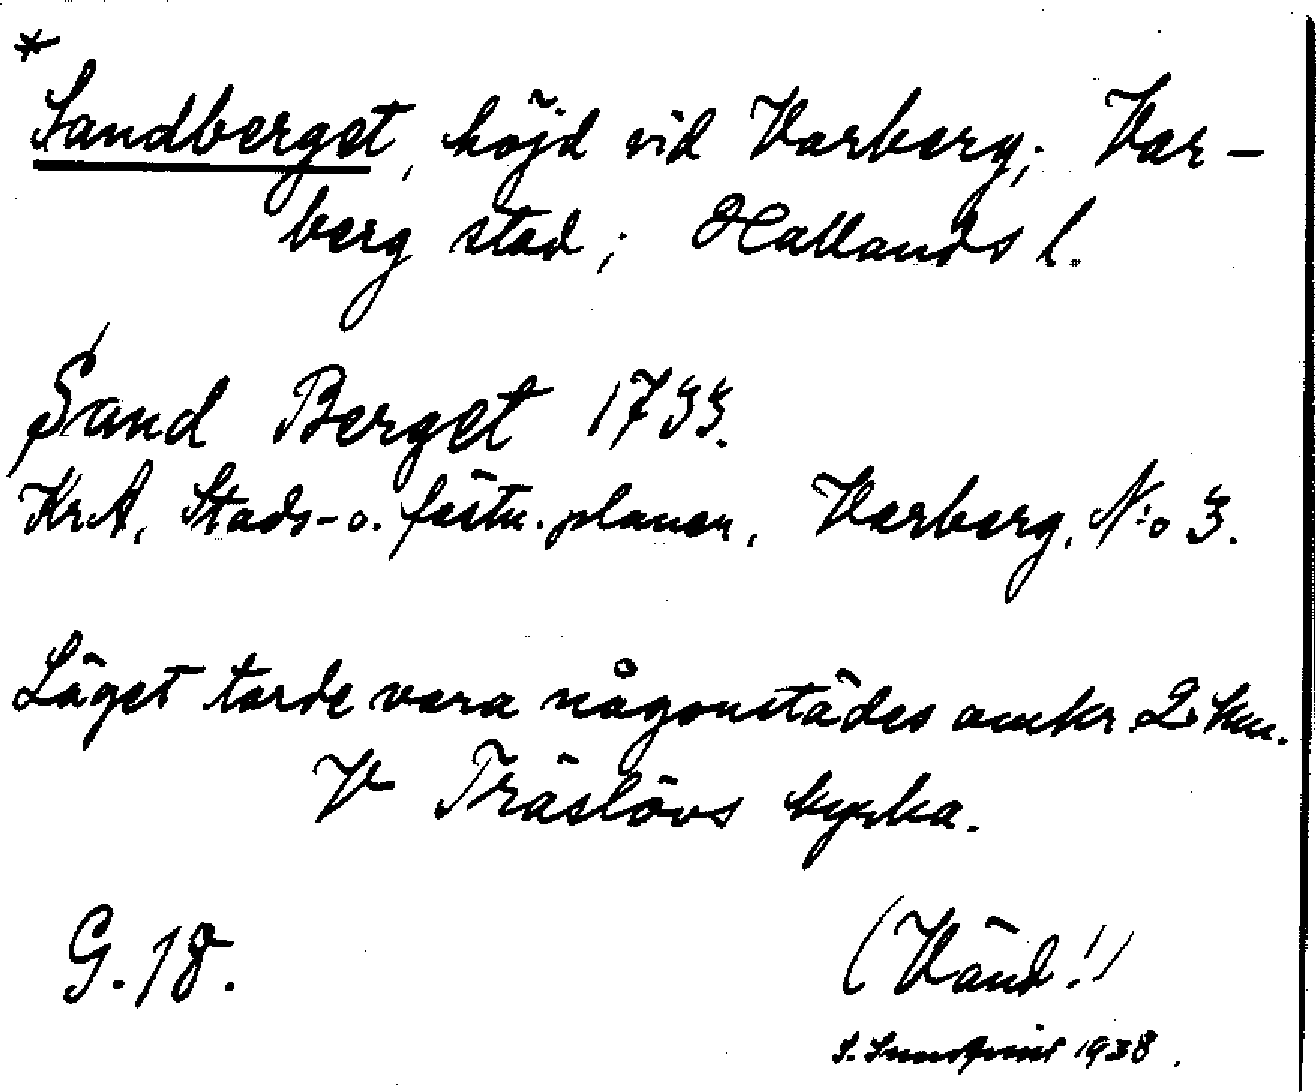 *
Sandberget, höjd vid Varberg; Var-
berg stad; Hallands l.
Sand Berget 1733.
KrA, Stads- o. fästn. planer, Varberg, N:o 3.
Läget torde vara någonstädes omkr. 2 km.
V Träslövs kyrka.
G. 18.
(Vänd!)
S. 1938.